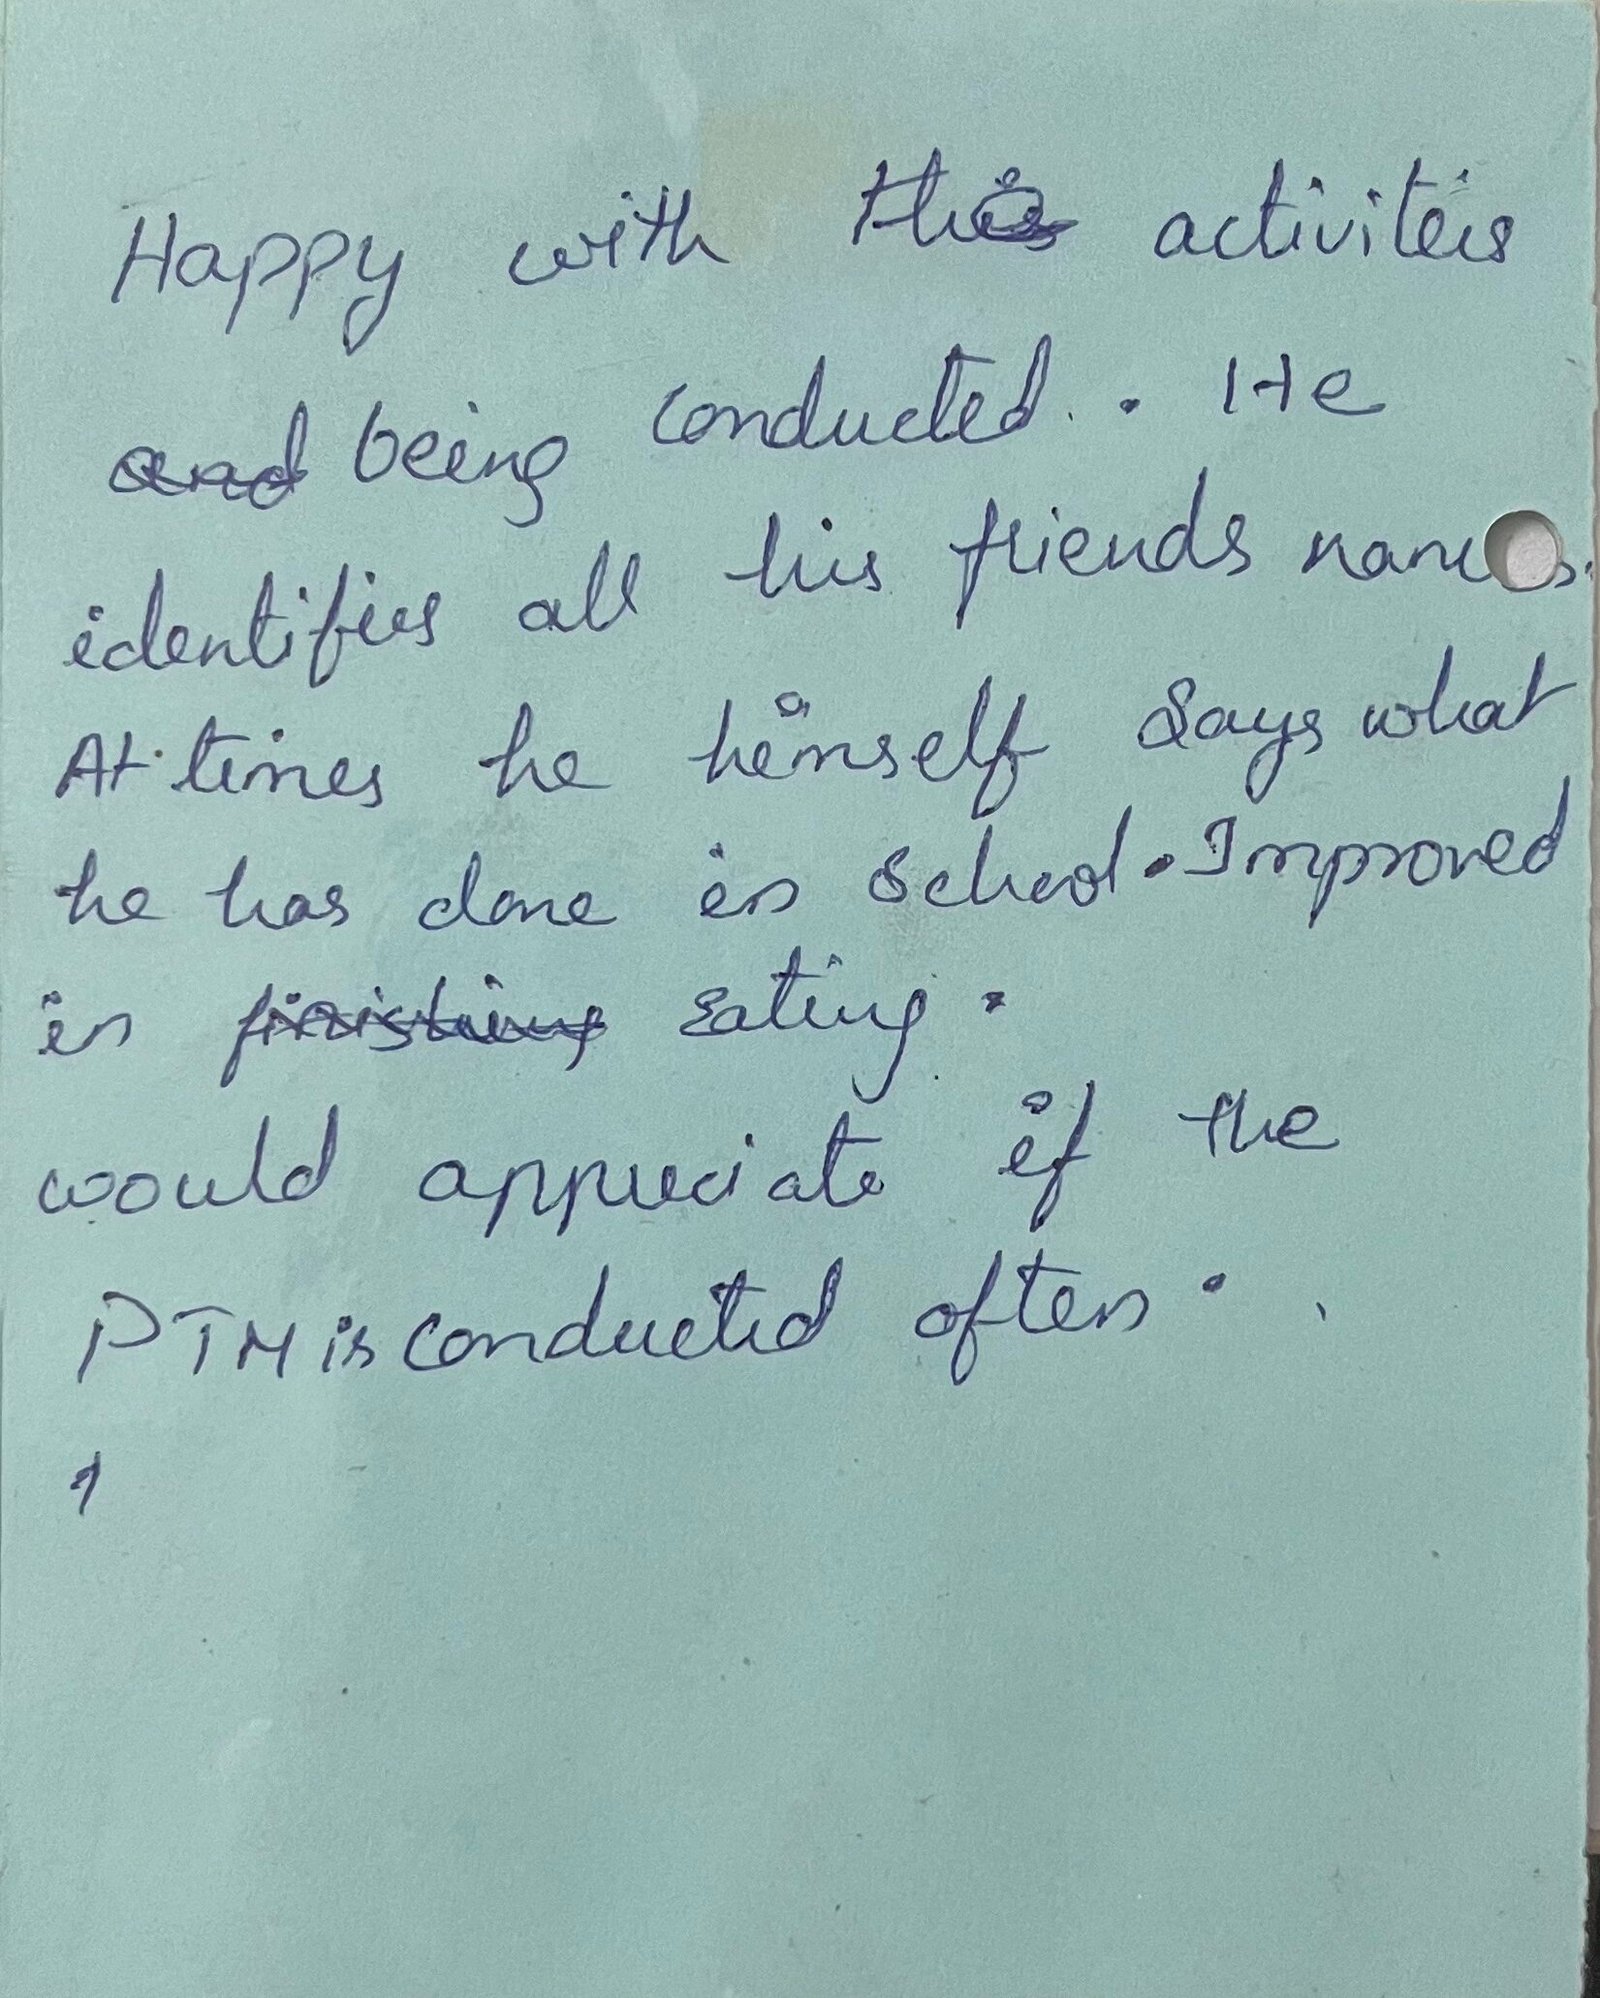 Happy with the activiteis
and being conducted. He
identifies all his friends names.
At times he himself says what
he has done in school. Improved
in finishing eating.
would appreciate if the
PTM is conducted often.